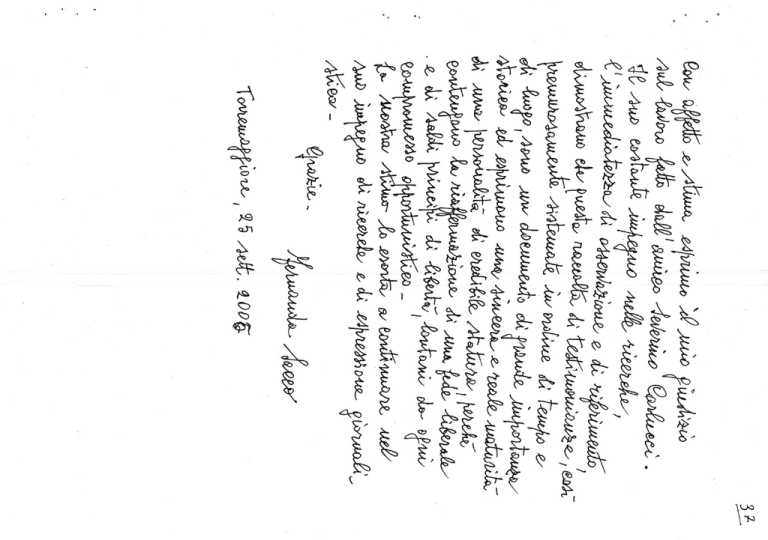 37
Con affetto e stima esprimo il mio giudizio
sul lavoro fatto dall'amico Severino Carlucci.
Il suo costante impegno nelle ricerche,
l'immediatezza di osservazione e di riferimento,
dimostrano che questa raccolta di testimonianze, così
premurosamente sistemate in ordine di tempo e
di luogo, sono un documento di grande importanza
storica ed esprimono una sincera e reale maturità-
di una personalità di credibile statura, perchè
contengono la riaffermazione di una fede liberale
e di saldi principi di libertà, lontani da ogni
compromesso opportunistico-
La nostra stima lo esorta a continuare nel
suo impegno di ricerche e di espressione giornali-
stica-
Grazie-
Fernanda Sacco
Torremaggiore, 25 sett. 2006